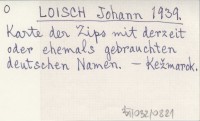 O LOISCH Johann 1939.
Karte der Zips mit derzeit
oder ehemals gebrauchten
deutschen Namen. – Kežmarok.